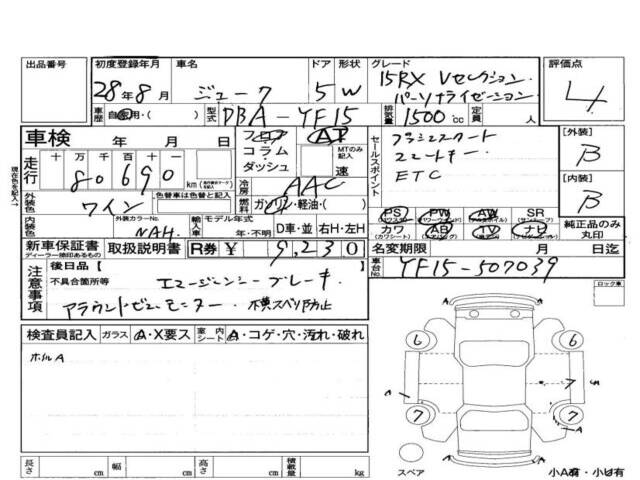 出品番号 初度登録年月 車名 ドア 形状 グレード 評価点
28年8月 ジューク 5 W 15RX Vセレクション パーソナライゼーション 4
車歴 自家用・( ) 型式 DBA-YF15 排気量 1500cc 定員 人
車検 年 月 日 フロア AT
コラム MTのみ記入
ダッシュ 速
走行 十 万 千 百 十 一
80690 km
冷房 AAC
燃料 ガソリン・軽油・( )
セールスポイント
プッシュスタート
スマートキー
ETC
[外装] B
[内装] B
外装色 ワイン 色替車は色替と記入
現在色を記入→
内装色 外装カラーNo. NAH 輸入車 モデル年式 年・不明 D車・並 右H・左H
PS PW AW SR
(パワステ) (パワーウィンド) (アルミホイル) (サンルーフ)
カワ AB TV ナビ
(カワシート) (エアバッグ)
純正品のみ丸印
新車保証書 取扱説明書 R券 ¥ 9,230 名変期限 月 日迄
ディーラー捺印あるもの
車台No. YF15-507039
注意事項
後日品【 】
不具合箇所等 エマージェンシーブレーキ
アラウンドビューモニター 横スベリ防止
ロック車
検査員記入 ガラス A・X要ス 室内シート A・コゲ・穴・汚れ・破れ
ホイルA
6 6
A 7 A
7 7
A A
スペア 小A有・小U有
長さ cm 幅 cm 高さ cm 積載量 kg